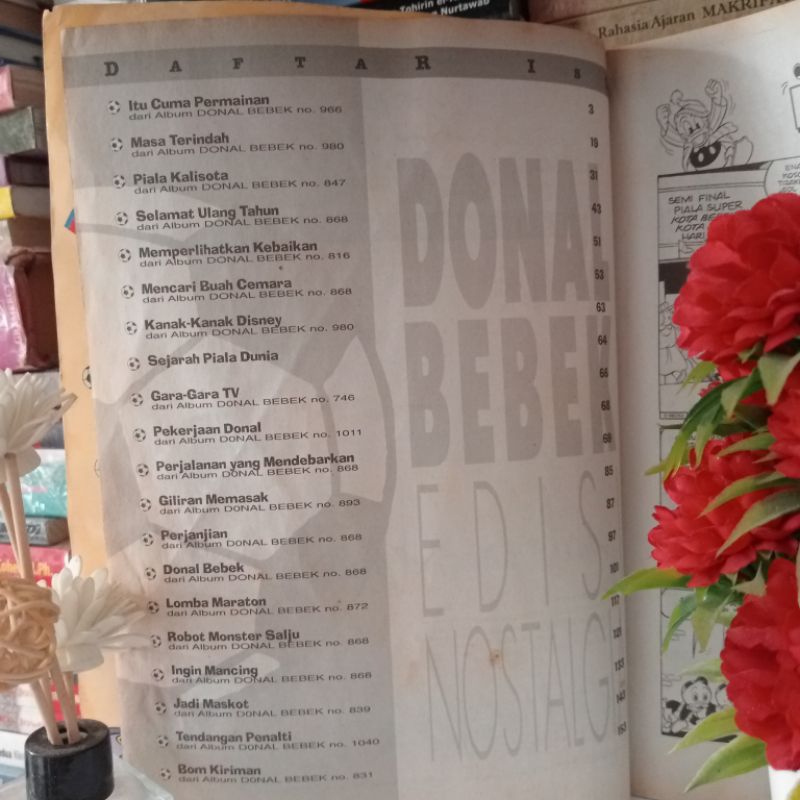 Tohirin
Nurtawab
Rahasia Ajaran MAKRIFA
DAFTAR IS
Itu Cuma Permainan 3
dari Album DONAL BEBEK no. 966
Masa Terindah 19
dari Album DONAL BEBEK no. 980
Piala Kalisota 31
dari Album DONAL BEBEK no. 847
Selamat Ulang Tahun 43
dari Album DONAL BEBEK no. 868
Memperlihatkan Kebaikan 51
dari Album DONAL BEBEK no. 816
Mencari Buah Cemara 53
dari Album DONAL BEBEK no. 868
Kanak-Kanak Disney 63
dari Album DONAL BEBEK no. 980
Sejarah Piala Dunia 64
Gara-Gara TV 66
dari Album DONAL BEBEK no. 746
Pekerjaan Donal 68
dari Album DONAL BEBEK no. 1011
Perjalanan yang Mendebarkan 69
dari Album DONAL BEBEK no. 868
Giliran Memasak 85
dari Album DONAL BEBEK no. 893
Perjanjian 87
dari Album DONAL BEBEK no. 868
Donal Bebek 97
dari Album DONAL BEBEK no. 868
Lomba Maraton 101
dari Album DONAL BEBEK no. 872
Robot Monster Salju 112
dari Album DONAL BEBEK no. 868
Ingin Mancing 121
dari Album DONAL BEBEK no. 868
Jadi Maskot 133
dari Album DONAL BEBEK no. 839
Tendangan Penalti 143
dari Album DONAL BEBEK no. 1040
Bom Kiriman 153
dari Album DONAL BEBEK no. 831
DONAL
BEBEK
EDIS
NOSTALG
SEMI FINAL
PIALA SUPER
KOTA BE
KOTA
HARI